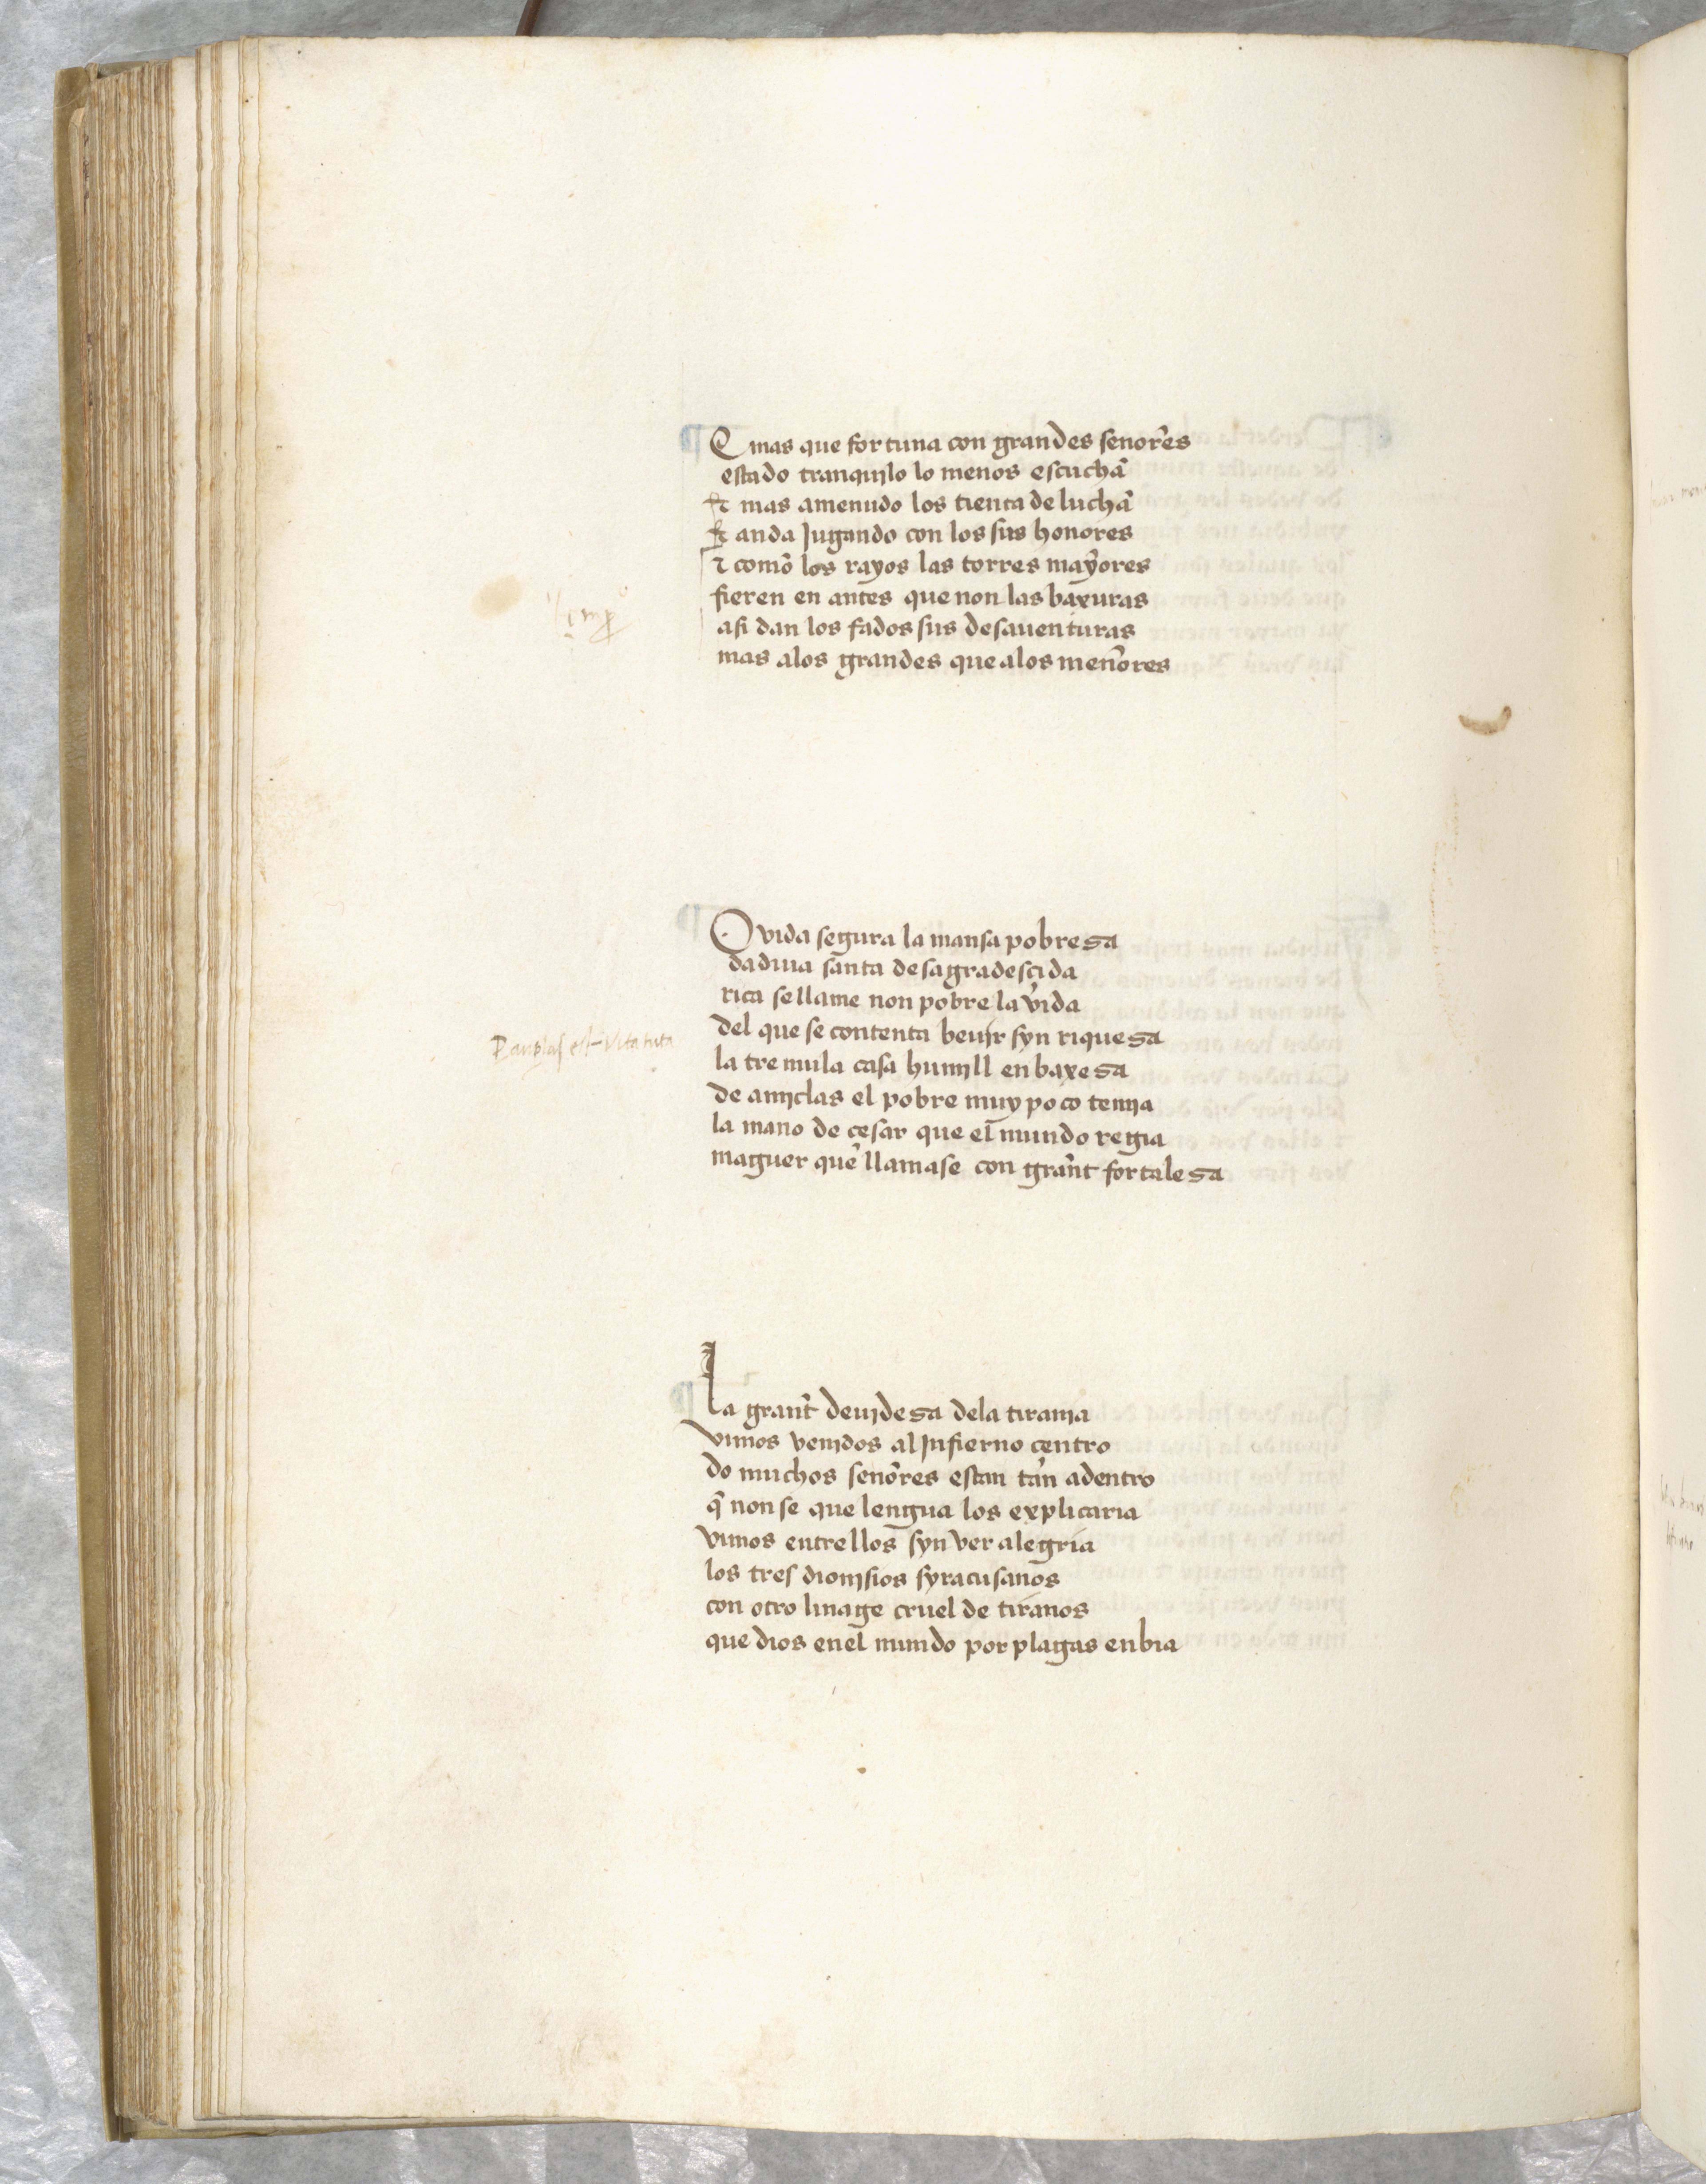 E mas que fortuna con grandes senor̃es
estado tranquilo lo menos escuchã
⁊ mas amenudo los tienta de luchã
⁊ anda Jugando con los sus honores
⁊ comõ los rayos las torres maỹores
fieren en antes que non las baxuras
asi dan los fados sus desauenturas
mas alos grandes que alos meñores
O vida segura la mansa pobresa
dadiua santa desagradesçida
rica sellame non pobre la vida
del que se contenta beuir syn riquesa
la tremula casa humjll en baxesa
de amjclas el pobre muy poco tenja
paup̱tas est vita tuta
la mano de cesar que el mundo regia
maguer que llamase con grañt fortalesa
La grañt deujdesa dela tiranja
vimos venjdos al Jnfierno çentro
do muchos señores estan tan adentro
q̃ non se que lengua los explicaria
vimos entrellos syn ver alegria
los tres dionjsios syracusanos
con otro linage cruel de tiranos
que dios enel mundo por plagas enbia